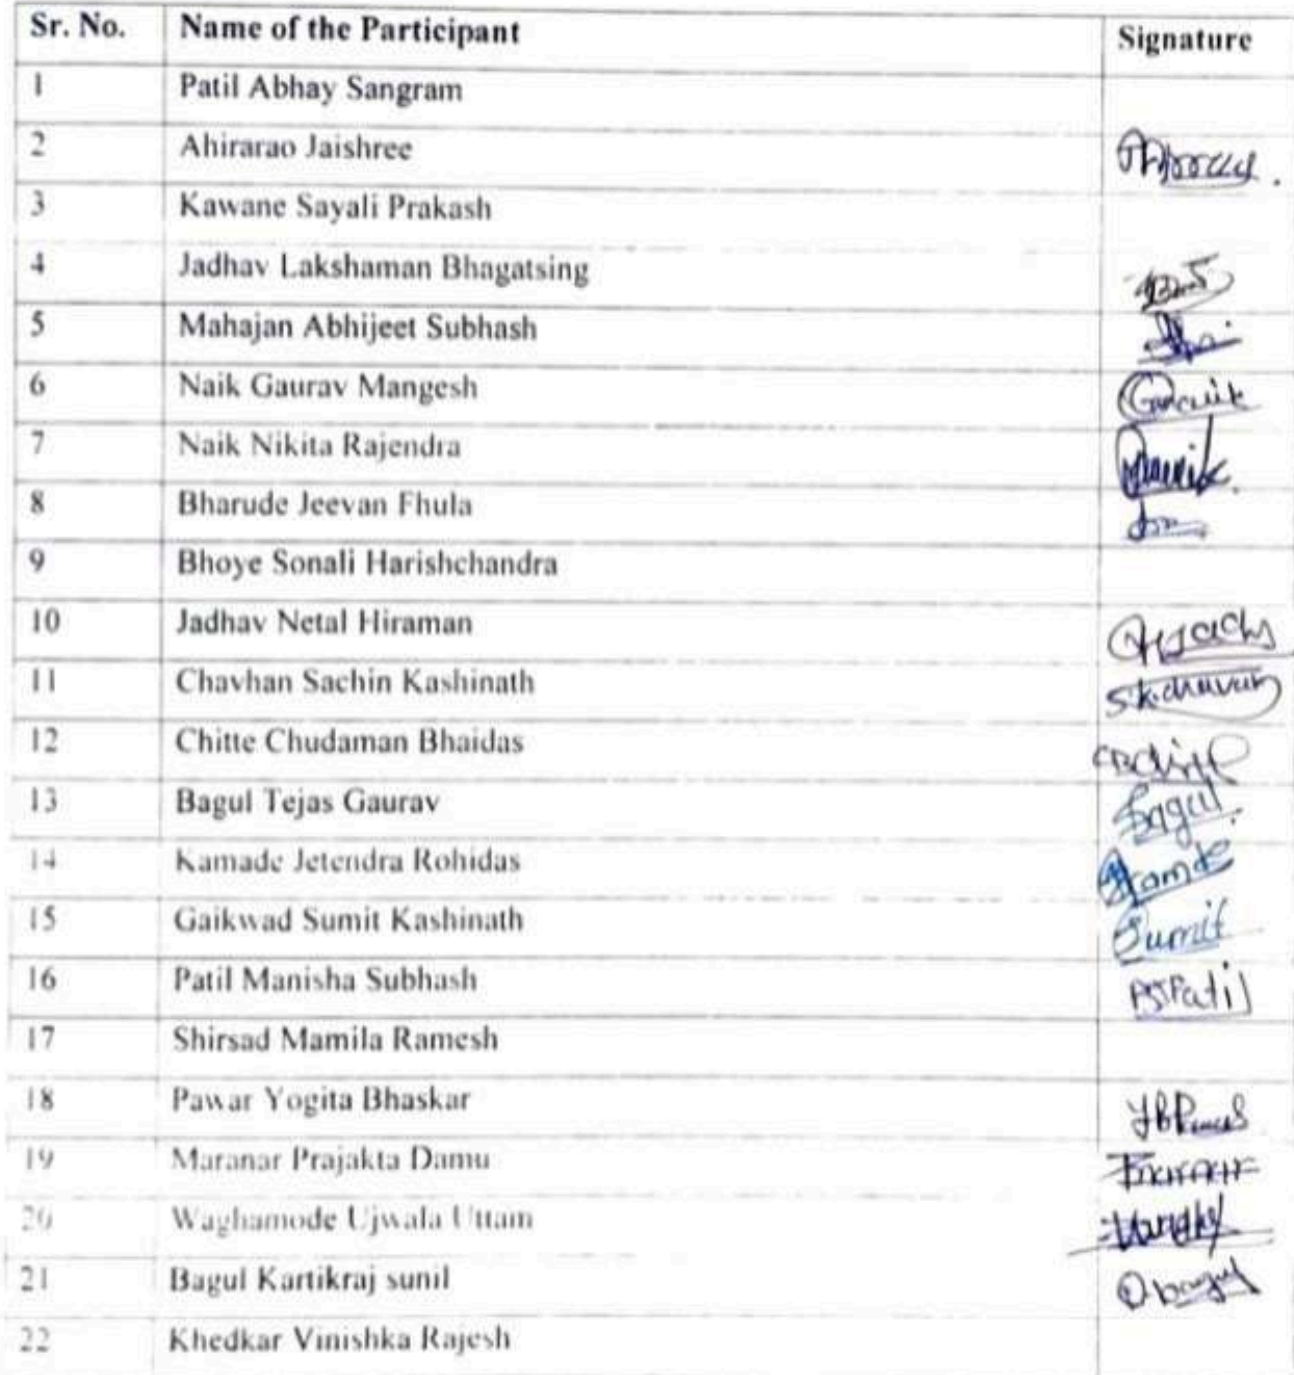 Sr. No. Name of the Participant Signature
1 Patil Abhay Sangram
2 Ahirarao Jaishree
3 Kawane Sayali Prakash
4 Jadhav Lakshaman Bhagatsing
5 Mahajan Abhijeet Subhash
6 Naik Gaurav Mangesh
7 Naik Nikita Rajendra
8 Bharude Jeevan Fhula
9 Bhoye Sonali Harishchandra
10 Jadhav Netal Hiraman
11 Chavhan Sachin Kashinath S.K.chavan
12 Chitte Chudaman Bhaidas
13 Bagul Tejas Gaurav Bagul.
14 Kamade Jetendra Rohidas
15 Gaikwad Sumit Kashinath Sumit
16 Patil Manisha Subhash
17 Shirsad Mamila Ramesh
18 Pawar Yogita Bhaskar
19 Maranar Prajakta Damu
20 Waghamode Ujwala Uttam
21 Bagul Kartikraj sunil
22 Khedkar Vinishka Rajesh